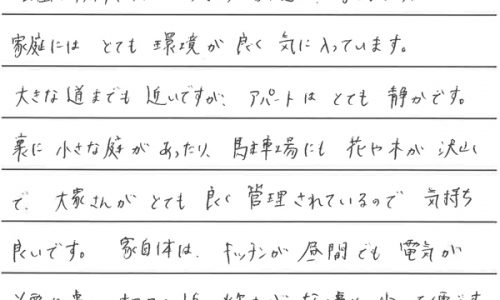 家庭には とても 環境が 良く 気に入っています。
大きな道までも 近いですが、アパートは とても 静かです。
裏に 小さな庭が あったり、駐車場にも 花や木が 沢山
で、大家さんが とても 良く 管理されているので 気持ち
良いです。 家自体は、キッチンが 昼間でも 電気が